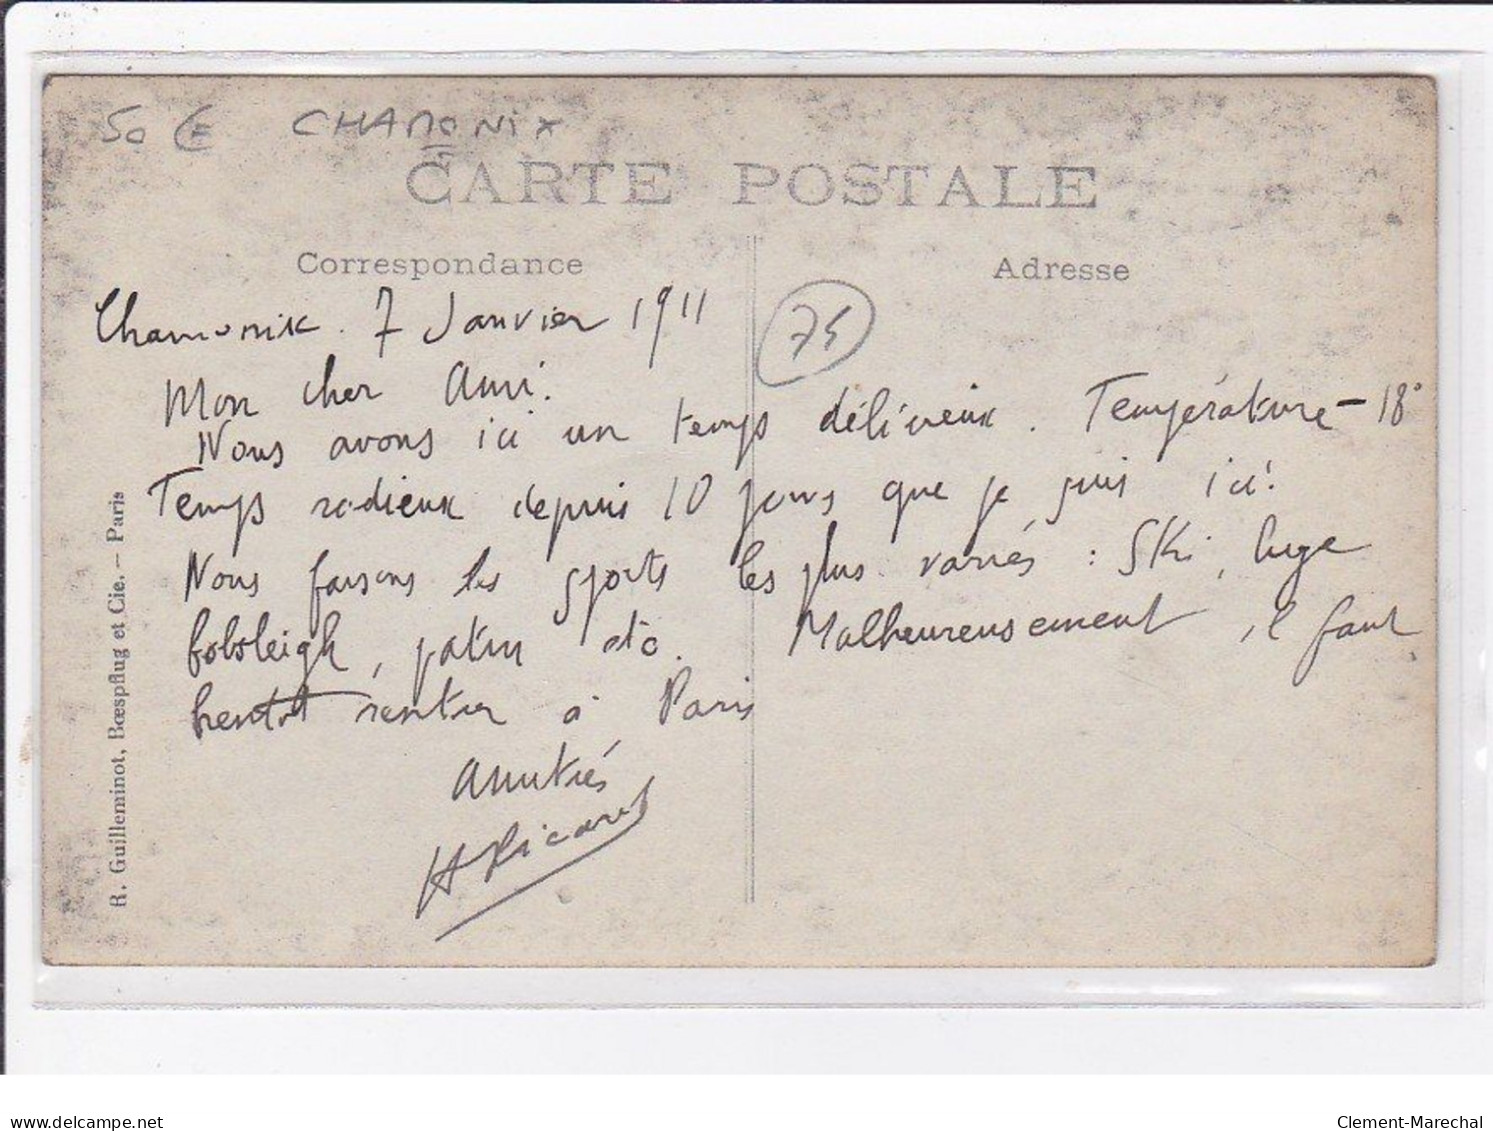 50 € CHAMONIX
CARTE POSTALE
Correspondance
Adresse
Chamonix. 7 Janvier 1911
74
Mon cher Ami.
Nous avons ici un temps délicieux. Température - 18°
Temps radieux depuis 10 jours que je suis ici.
Nous faisons les sports les plus variés : Ski, luge
bobsleigh, patin etc. Malheureusement il faut
bientôt rentrer à Paris
Amitiés
H Picard
R. Guilleminot, Bœspflug et Cie. — Paris
delcampe.net
Clement-Marechal